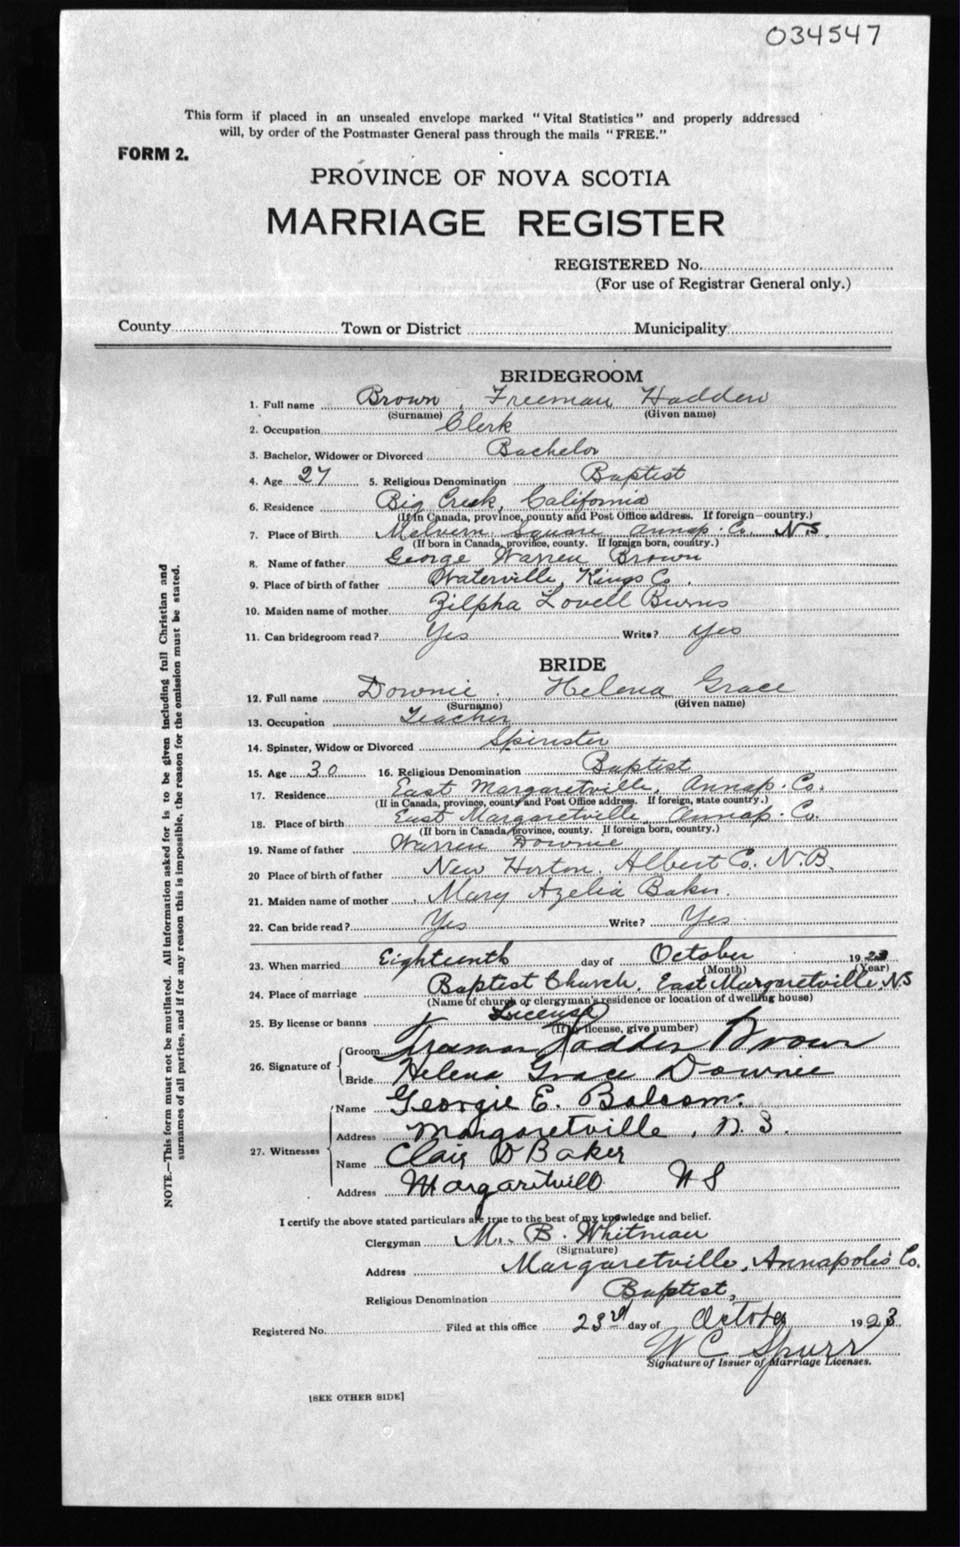 034547
This form if placed in an unsealed envelope marked "Vital Statistics" and properly addressed
will, by order of the Postmaster General pass through the mails "FREE."
FORM 2.
PROVINCE OF NOVA SCOTIA
MARRIAGE REGISTER
REGISTERED No.
(For use of Registrar General only.)
County Town or District Municipality
BRIDEGROOM
1. Full name Brown, Freeman Hadden
(Surname) (Given name)
2. Occupation Clerk
3. Bachelor, Widower or Divorced Bachelor
4. Age 27 5. Religious Denomination Baptist
6. Residence Big Creek, California
(If in Canada, province, county and Post Office address. If foreign—country.)
7. Place of Birth Melvern Square Annap. Co. N.S.
(If born in Canada, province, county. If foreign born, country.)
8. Name of father George Warren Brown
9. Place of birth of father Waterville, Kings Co.
10. Maiden name of mother Zilpha Lovell Burns
11. Can bridegroom read? Yes Write? Yes
BRIDE
12. Full name Downie, Helena Grace
(Surname) (Given name)
13. Occupation Teacher
14. Spinster, Widow or Divorced Spinster
15. Age 30 16. Religious Denomination Baptist
17. Residence East Margaretville, Annap. Co.
(If in Canada, province, county and Post Office address. If foreign, state country.)
18. Place of birth East Margaretville, Annap. Co.
(If born in Canada, province, county. If foreign born, country.)
19. Name of father Warren Downie
20 Place of birth of father New Horton, Albert Co. N.B.
21. Maiden name of mother Mary Azelia Baker.
22. Can bride read? Yes Write? Yes
23. When married Eighteenth day of October 1923
(Month) (Year)
24. Place of marriage Baptist Church, East Margaretville, N.S
(Name of church or clergyman's residence or location of dwelling house)
25. By license or banns License
(If by license, give number)
26. Signature of Groom Freeman Hadden Brown
Bride Helena Grace Downie
27. Witnesses Name Georgie E. Balcom.
Address Margaretville, N.S.
Name Clair D Baker
Address Margaretvill NS
I certify the above stated particulars are true to the best of my knowledge and belief.
Clergyman M. B. Whitman
(Signature)
Address Margaretville, Annapolis Co.
Religious Denomination Baptist,
Registered No. Filed at this office 23rd day of October 1923
W C Spurr
Signature of Issuer of Marriage Licenses.
[SEE OTHER SIDE]
NOTE.—This form must not be mutilated. All information asked for is to be given including full Christian and
surnames of all parties, and if for any reason this is impossible, the reason for the omission must be stated.